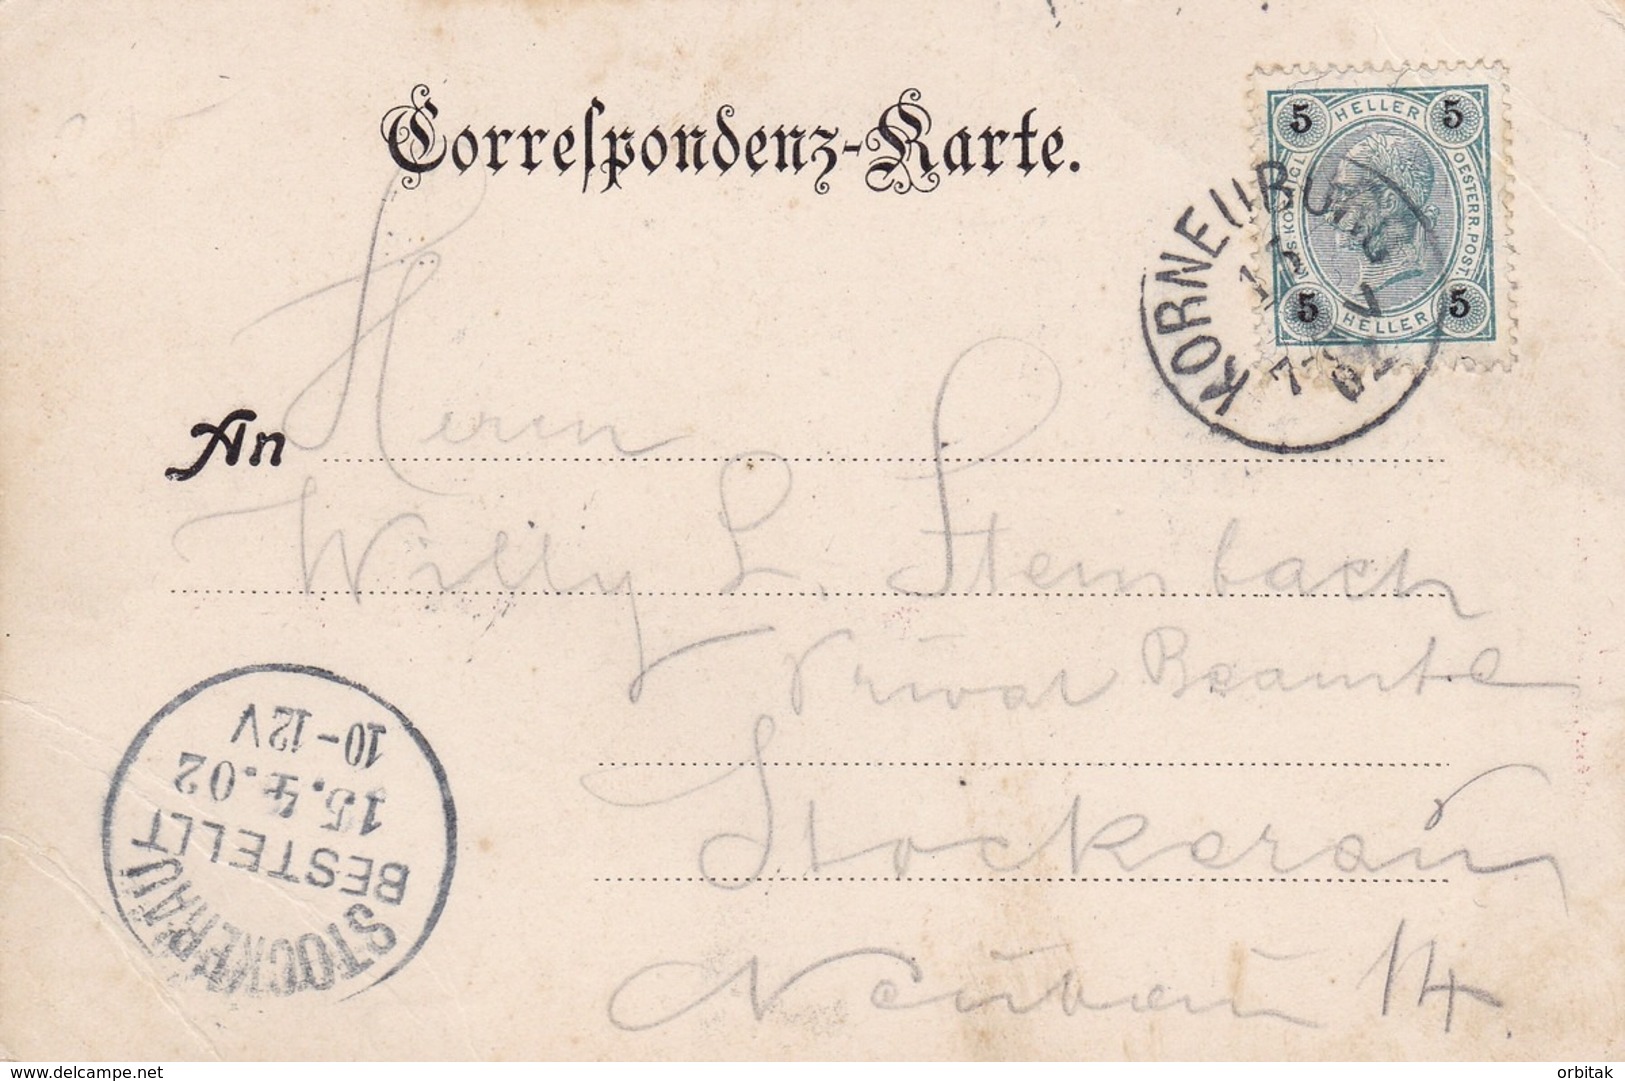 Correspondenz-Karte.
5 HELLER 5
KAIS. KÖNIGL. OESTERR. POST.
5 HELLER 5
KORNEUBURG
7
02
An Herrn
Willy L. Steinbach
Privat Beamte
Stockerau
Neubau 14.
STOCKERAU
BESTELLT
15.4.02
10-12V
delcampe.net
orbitak